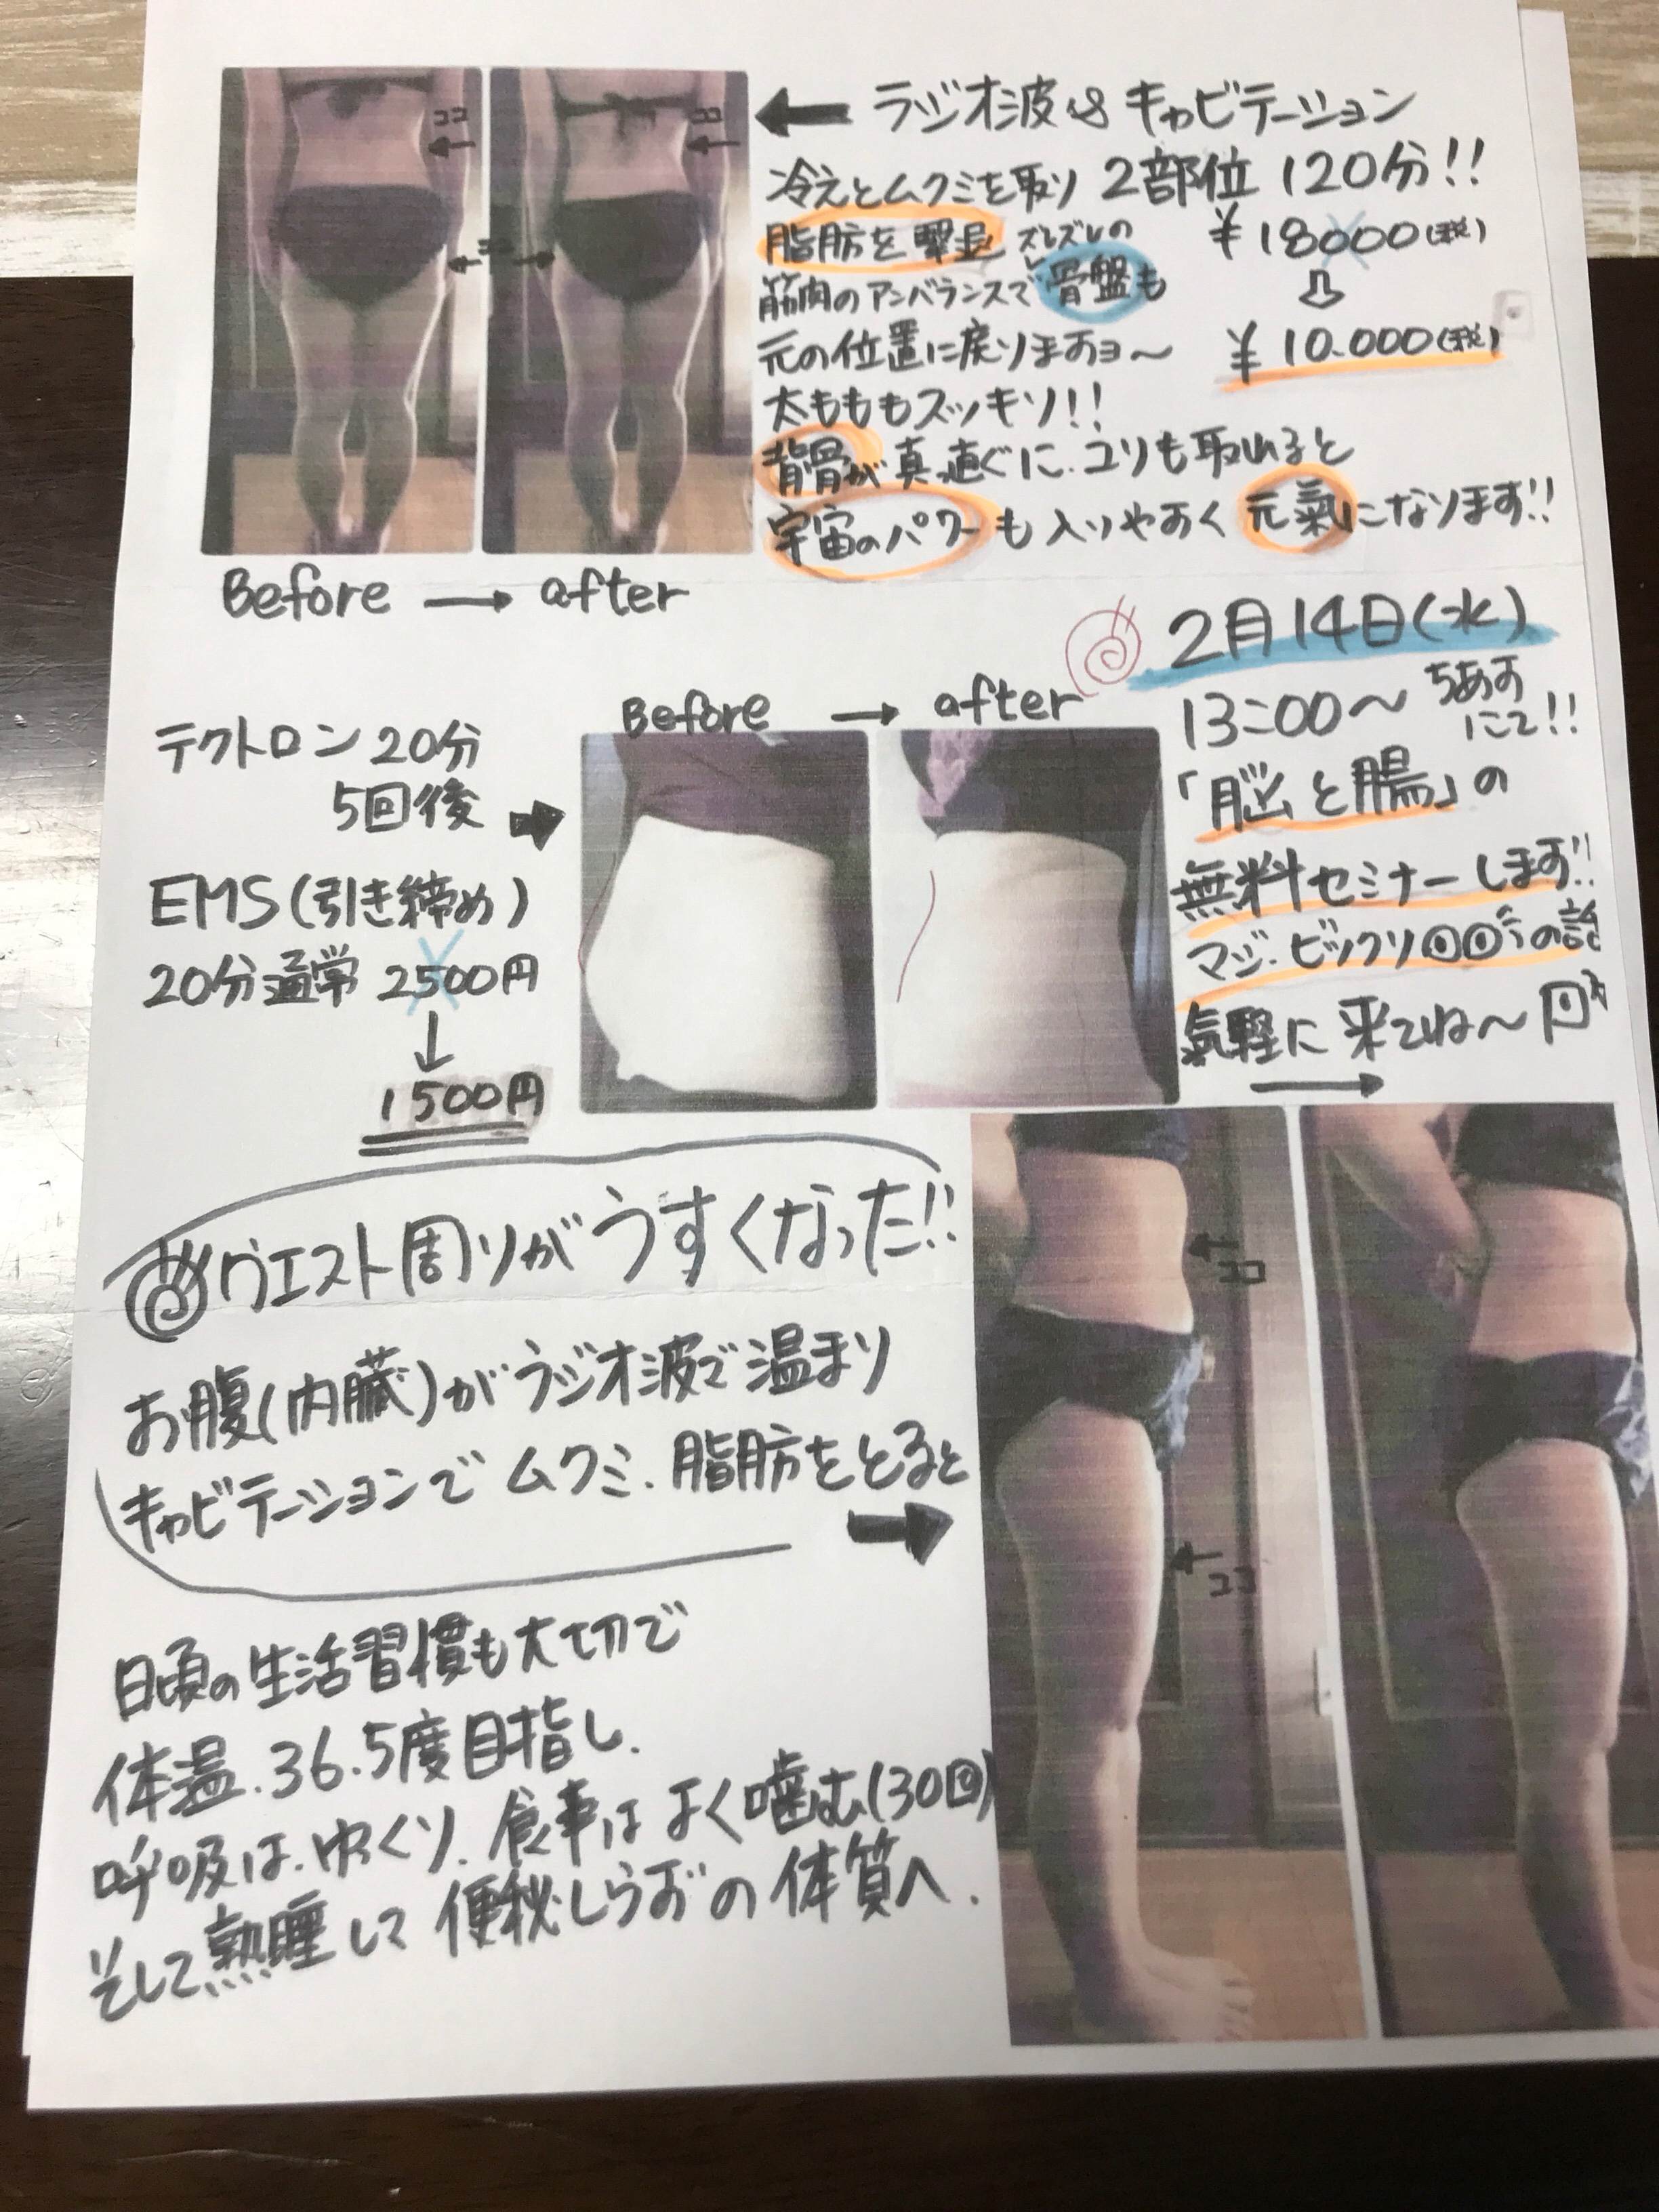 ココ
ココ
ココ
Before → after
← ラジオ波 & キャビテーション
冷えとムクミを取り 2部位 120分!!
脂肪を 撃退 ズレズレの
筋肉のアンバランスで骨盤も
元の位置に戻りますョ〜
¥18000(税)
⇩
¥10.000(税)
太ももももスッキリ!!
背骨が真っ直ぐに.コリも取れると
宇宙のパワーも入りやすく 元氣になります!!
2月14日(水)
13:00〜 ちあす
にて!!
「脳と腸」の
無料セミナーします!!
マジ.ビックリ
の話
気軽に来てね〜
→
テクトロン 20分
5回後 →
EMS(引き締め)
20分通常 2500円
↓
1500円
Before → after
ウエスト周りがうすくなった!!
お腹(内臓)がラジオ波で温まり
キャビテーションでムクミ.脂肪をとると
→
ココ
ココ
日頃の生活習慣も大切で
体温.36.5度目指し.
呼吸は.ゆくり.食事はよく噛む(30回)
そして熟睡して便秘しらずの体質へ.